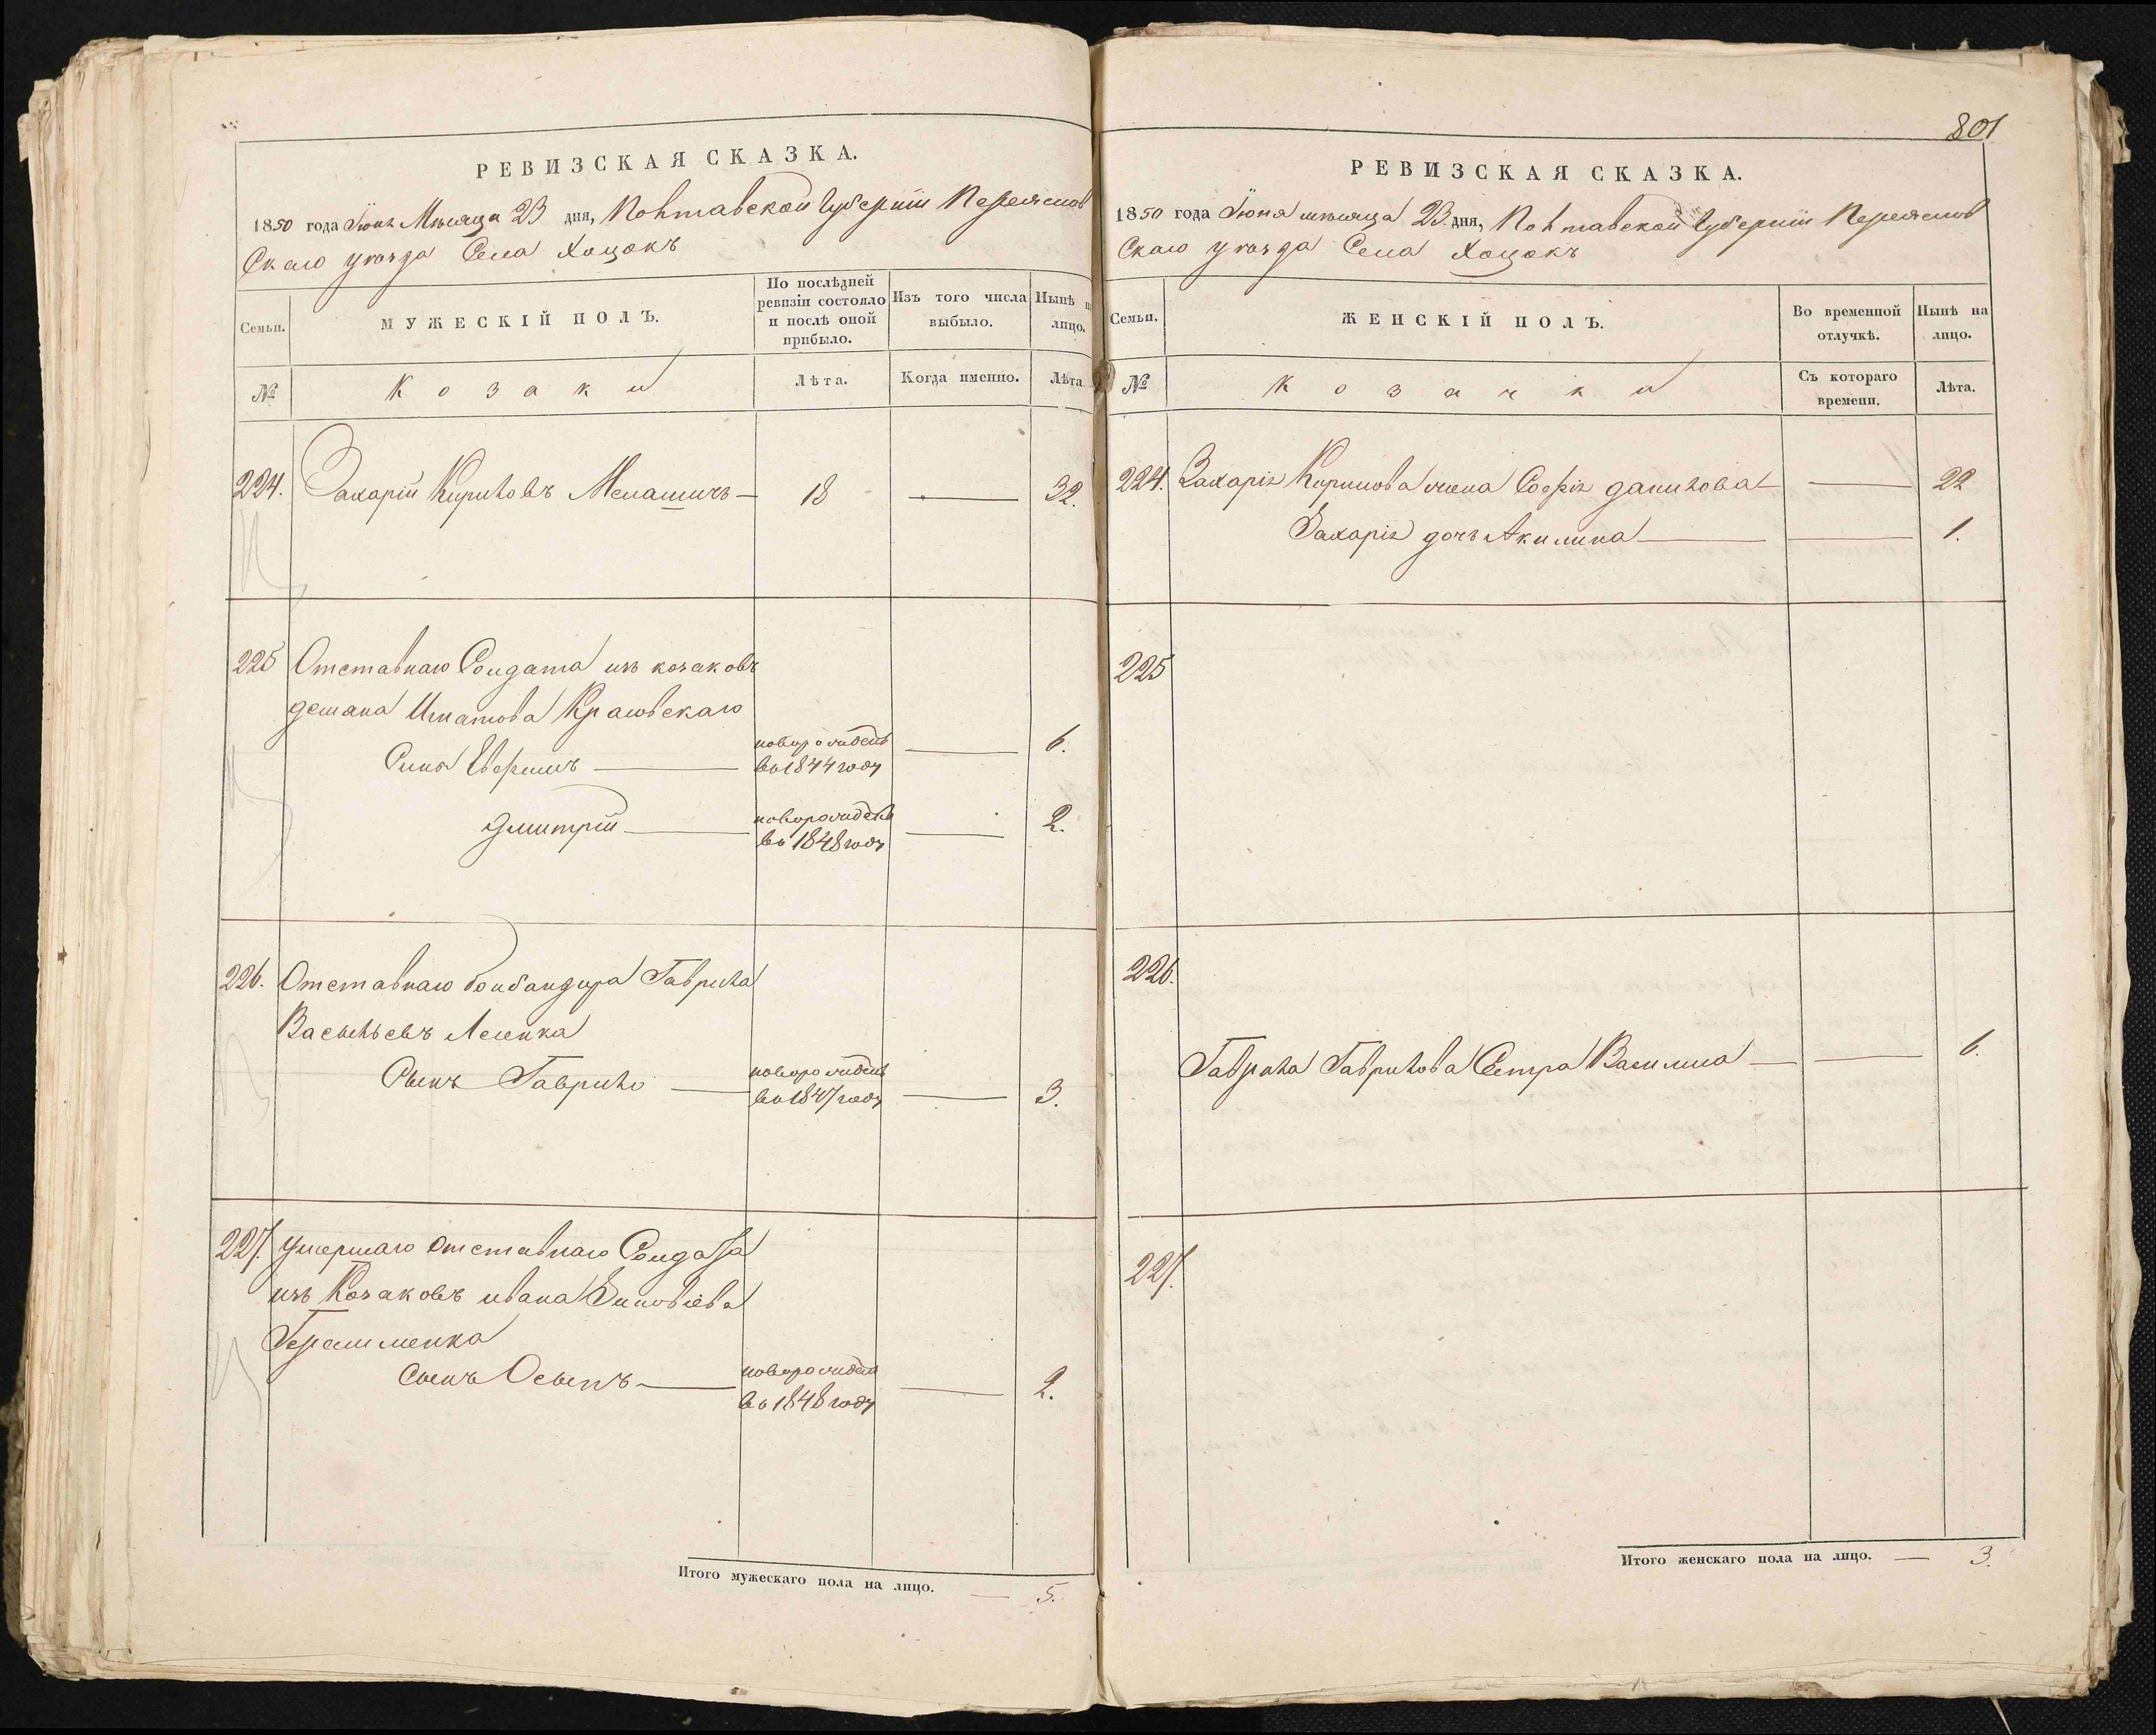 РЕВИЗСКАЯ СКАЗКА.
1850 года Іюня Мѣсяца 23 дня, Полтавской Губерніи Переяслов
Скаго уѣзда Села Хоцокъ
Семьи.
МУЖЕСКІЙ ПОЛЪ.
По послѣдней ревизіи состояло и послѣ оной прибыло.
Изъ того числа выбыло.
Нынѣ на лицо.
№
Козаки
Лѣта.
Когда именно.
Лѣта
224. Захарій Кириловъ 18 — 32.
225 Отставнаго Солдата изъ козаковъ
демяна Игнатова
Сынъ новорожденъ — 6.
въ 1844 году
Дмитрій — новорожденъ — 2.
въ 1848 году
226. Отставнаго бонбандира Гаврила
Васильевъ
Сынъ Гаврило — новорожденъ — 3.
въ 1847 году
227. умершаго отставнаго Солдата
изъ Козаковъ ивана Зиновіева
Герасименка
Сынъ Осыпъ — новорожденъ — 2.
въ 1848 году
Итого мужескаго пола на лицо. — 5.
801
РЕВИЗСКАЯ СКАЗКА.
1850 года Іюня мѣсяца 23 дня, Полтавской Губерніи Переяслов
Скаго уѣзда Села Хоцокъ
Семьи.
ЖЕНСКІЙ ПОЛЪ.
Во временной отлучкѣ.
Нынѣ на лицо.
№
Козачки
Съ котораго времени.
Лѣта.
224. Захарія Кирилова жена Софія данилова — 22
Захарія дочь Акилина — — 1.
225
226.
Гаврила Гаврилова Сестра Василиса — — 6.
227.
Итого женскаго пола на лицо. — 3.